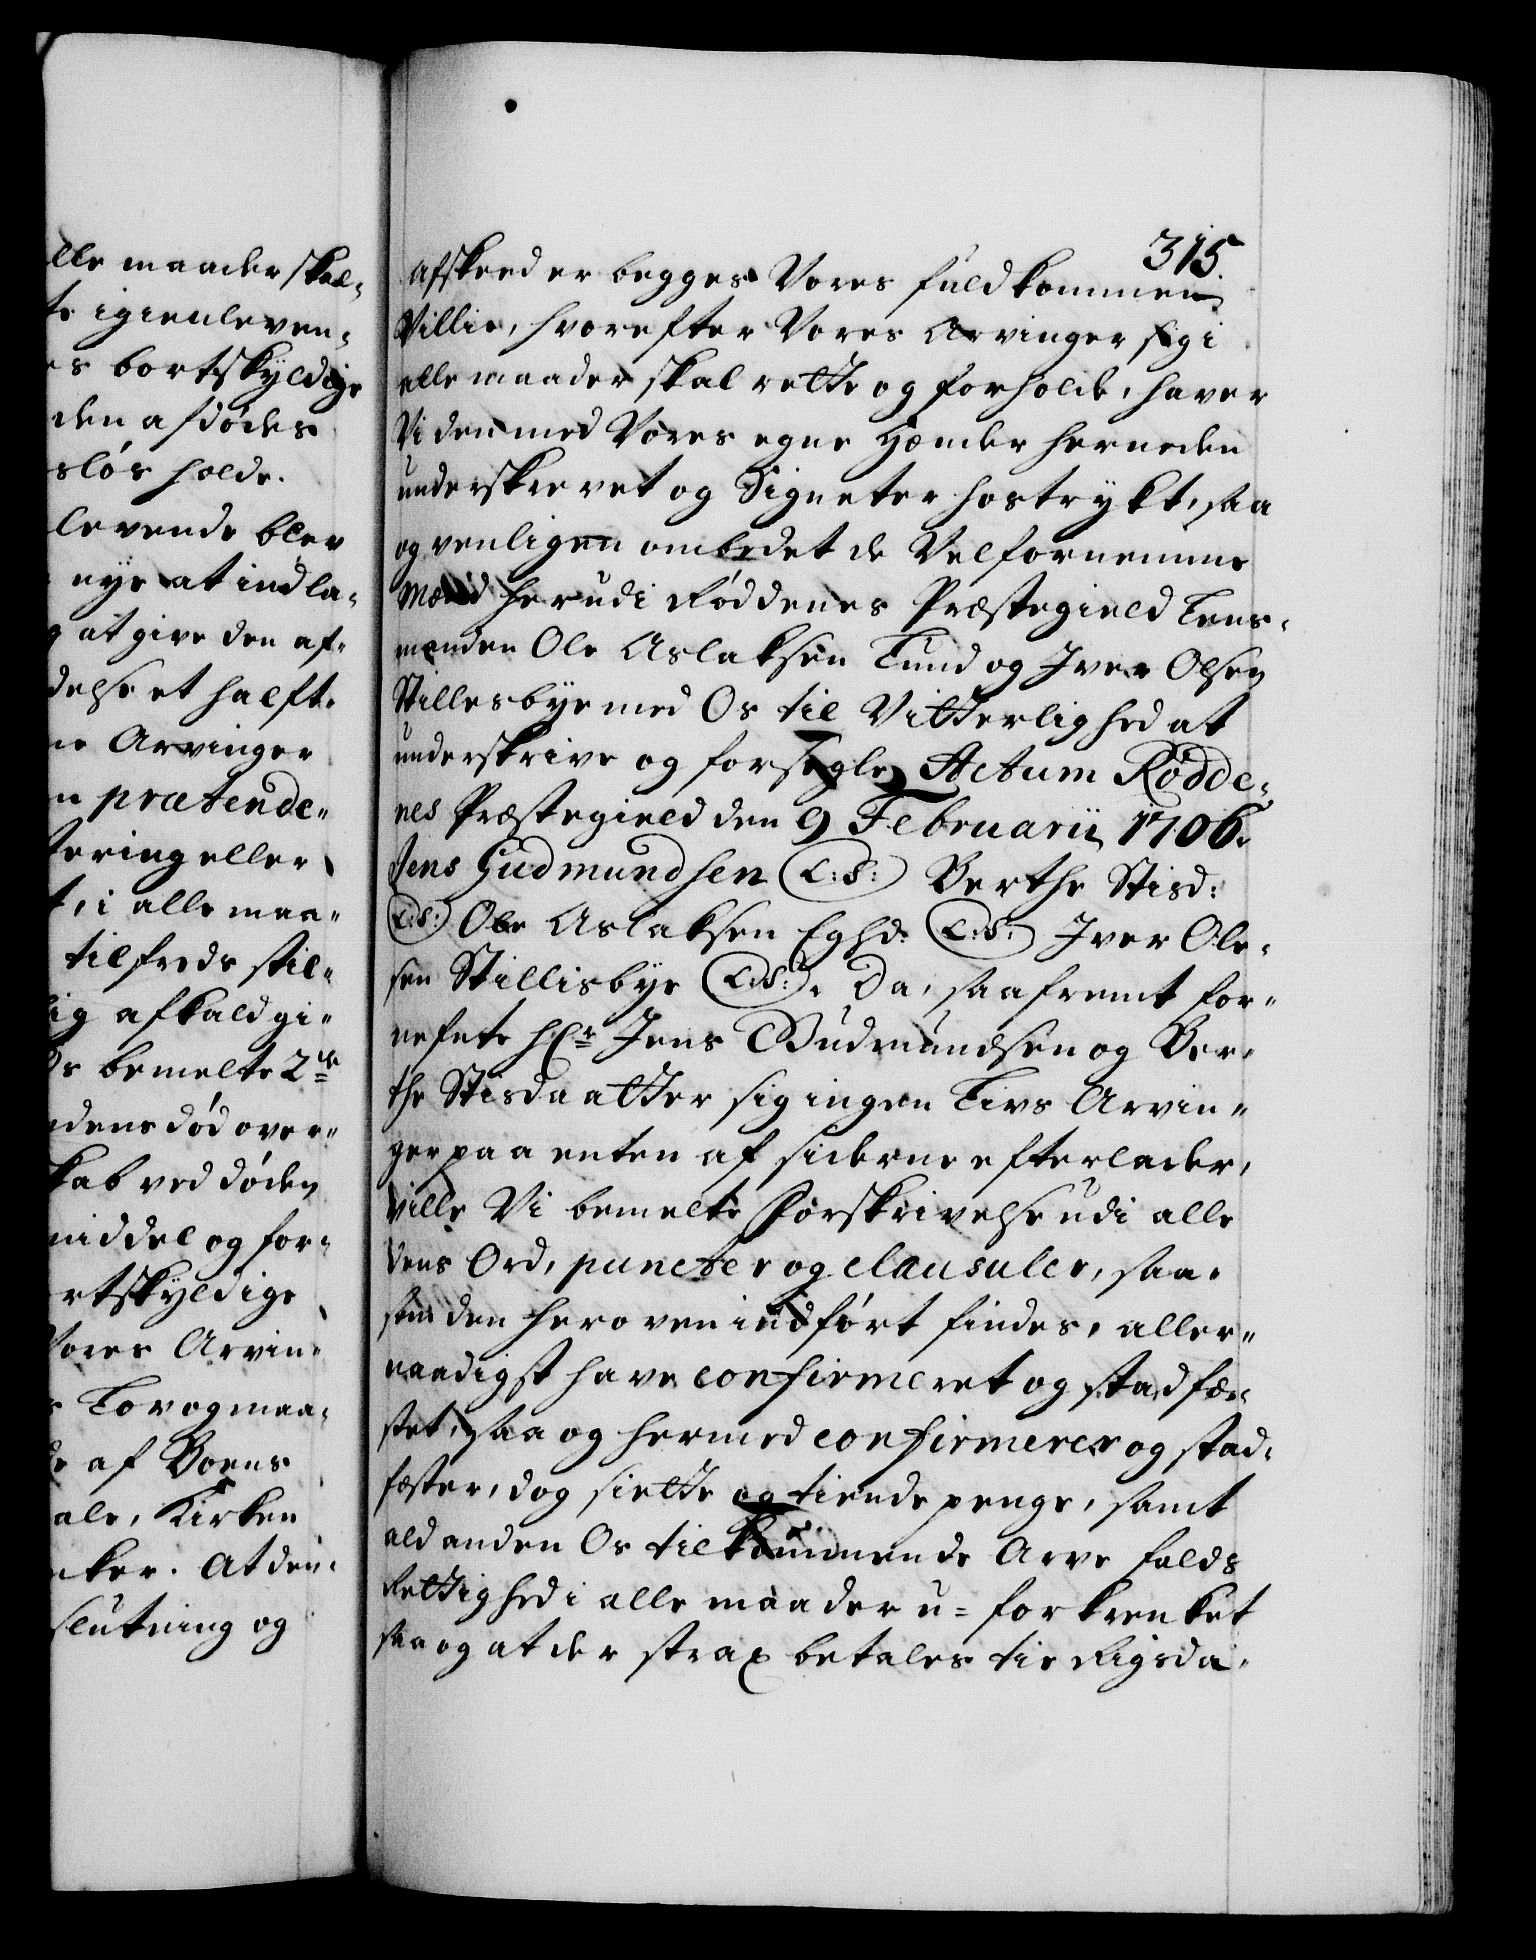 lle maader skal-
te igienleven-
es bortskyldige
den afdødes
sløs holde.
levende blev
nye at indla-
g at give den af-
delse et halft.
ne Arvinger
n prætende-
tering eller
t, i alle maa-
tilfreds stil-
lig afkald gi-
Os bemelte 2de
dens død over-
skab ved døden
middel og for-
rtskyldige
Vores Arvin-
s Lov og maa-
de af Voens
ale, Kirken
cker. At den-
slutning og
315.
afskeed er begges Vores fuldkommen
Villie, hvorefter Vores Arvinger sig i
alle maader skal rette og forholde, haver
Vi den med Vores egne Hænder herneden
underskrevet og Signeter hostrykt, saa
og venligen ombedet de Velfornemme
Mænd her udi Røddenes Præstegield Lens-
manden Ole Aslaksen Lund og Iver Olsen
Stillesbye med Os til Vitterlighed at
underskrive og forsegle, Actum Rødde-
nes Præstegield den 9 Februarii 1706.
Jens Gudmundsen (L:S:) Berthe Stisd:
(L:S:) Ole Aslaksen Eghd: (L:S:) Iver Ole-
sen Stillisbye (L:S:). Da, saafremt for-
nefnte Hr Jens Gudmundsen og Ber-
the Stisdaatter sig ingen Livs Arvin-
ger paa enten af siderne efterlader,
Ville Vi bemelte Forskrivelse udi alle
dens Ord, puncter og clausuler, saa-
som den heroven indført findes, aller-
naadigst have confirmeret og stadfæ-
stet, saa og hermed confirmerer og stad-
fæster, dog siette og tiende penge, samt
ald anden Os tilkommende Arve falds
Rettighed i alle maader u-forkrenket
saa og at der strax betales tie Rigsda-